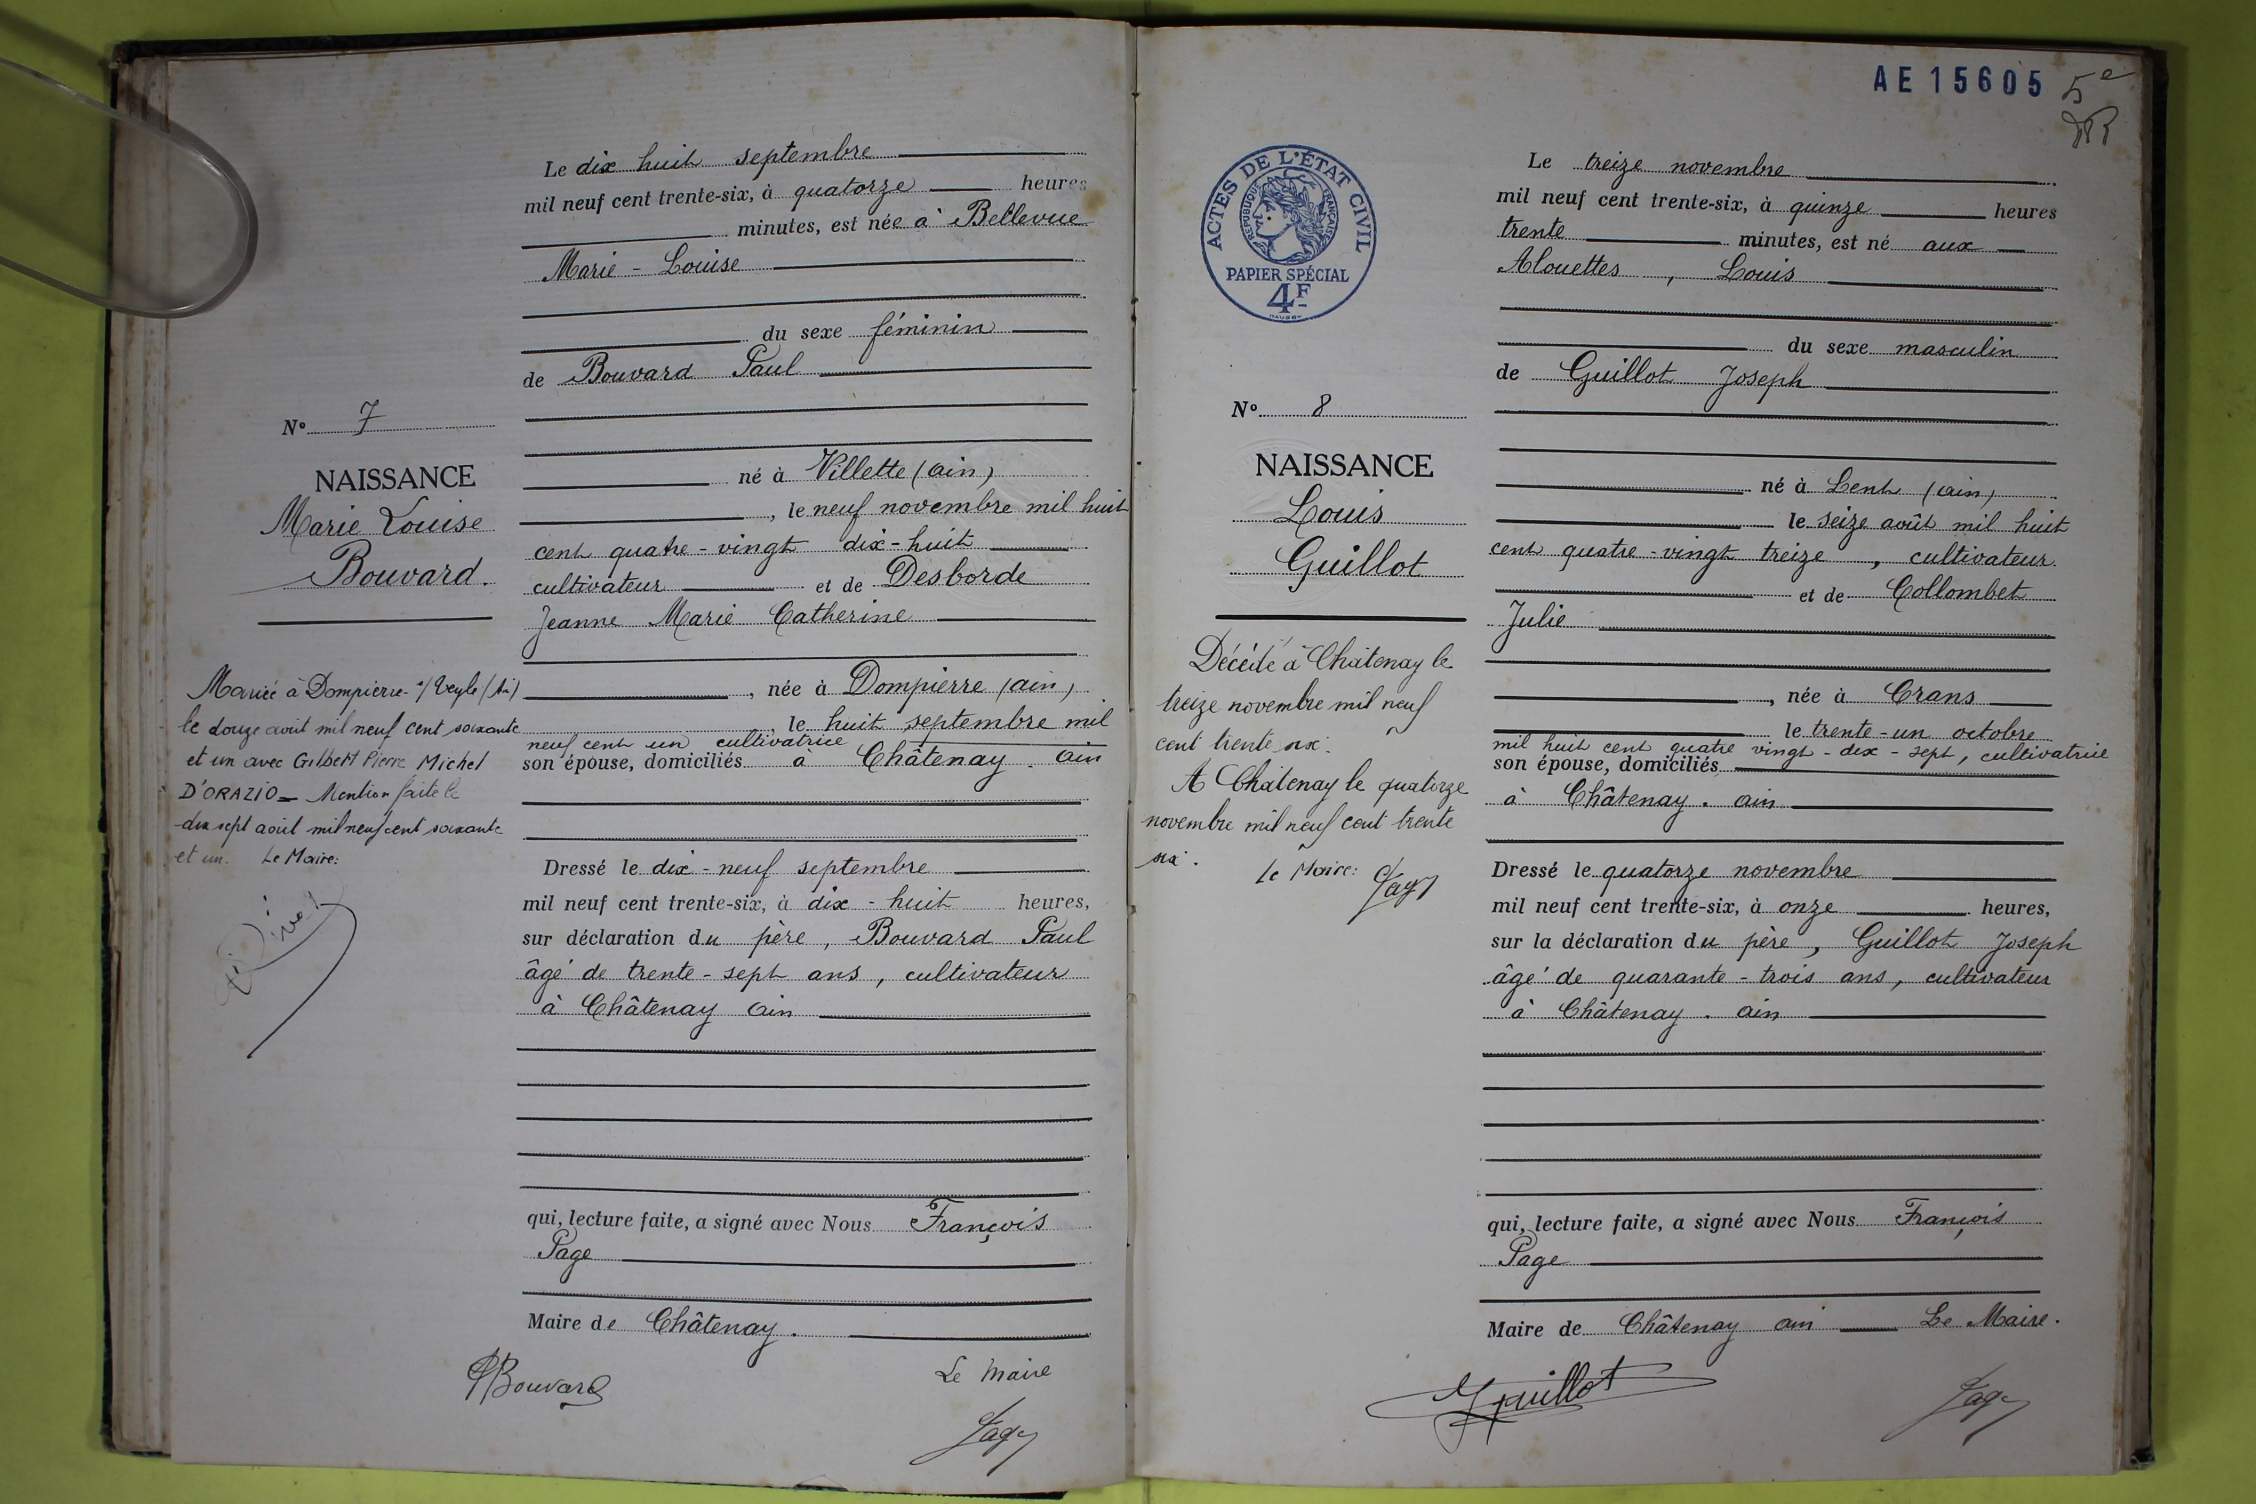 Le dix huit septembre
mil neuf cent trente-six, à quatorze heures
minutes, est née à Bellevue
Marie - Louise
du sexe féminin
de Bouvard Paul
N° 7
NAISSANCE
Marie Louise
Bouvard.
né à Villette (ain)
, le neuf novembre mil huit
cent quatre - vingt dix - huit
cultivateur et de Desborde
Jeanne Marie Catherine
, née à Dompierre (ain)
, le huit septembre mil
neuf cent un cultivatrice
son épouse, domiciliés à Châtenay . ain
Mariée à Dompierre s/ Veyle (Ain)
le douze août mil neuf cent soixante
et un avec Gilbert Pierre Michel
D'ORAZIO - Mention faite le
dix sept août mil neuf cent soixante
et un. Le Maire:
Dressé le dix - neuf septembre
mil neuf cent trente-six, à dix - huit heures,
sur déclaration du père, Bouvard Paul
âgé de trente - sept ans, cultivateur
à Châtenay ain
qui, lecture faite, a signé avec Nous François
Page
Maire de Châtenay.
PBouvard
Le Maire
Page
AE15605
5e
ACTES DE L'ÉTAT CIVIL
REPUBLIQUE FRANÇAISE
PAPIER SPÉCIAL
4F
Le treize novembre
mil neuf cent trente-six, à quinze heures
trente minutes, est né aux
Alouettes, Louis
du sexe masculin
de Guillot Joseph
N° 8
NAISSANCE
Louis
Guillot
né à Lent (ain)
le seize août mil huit
cent quatre - vingt treize, cultivateur.
et de Collombet
Julie
, née à Crans
le trente - un octobre
mil huit cent quatre vingt - dix - sept, cultivatrice
son épouse, domiciliés
à Châtenay . ain
Décédé à Châtenay le
treize novembre mil neuf
cent trente six.
A Châtenay le quatorze
novembre mil neuf cent trente
six.
Le Maire: Page
Dressé le quatorze novembre
mil neuf cent trente-six, à onze heures,
sur la déclaration du père, Guillot Joseph
âgé de quarante - trois ans, cultivateur
à Châtenay . ain
qui, lecture faite, a signé avec Nous François
Page
Maire de Châtenay ain Le Maire.
JGuillot
Page